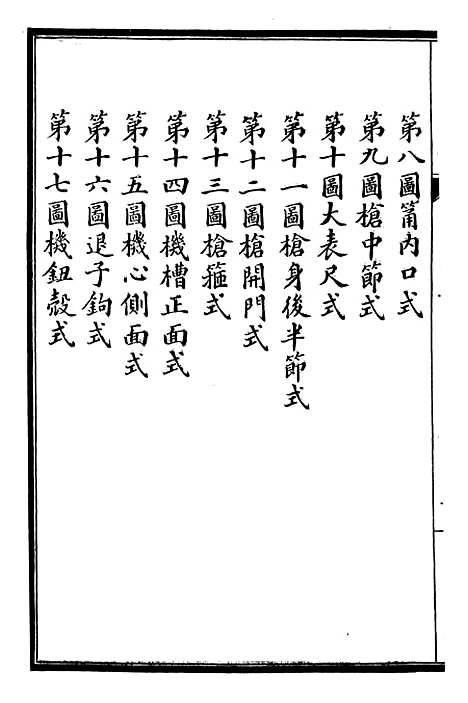 第八圖筩內口式
第九圖槍中節式
第十圖大表尺式
第十一圖槍身後半節式
第十二圖槍開門式
第十三圖槍箍式
第十四圖機槽正面式
第十五圖機心側面式
第十六圖退子鉤式
第十七圖機鈕殼式